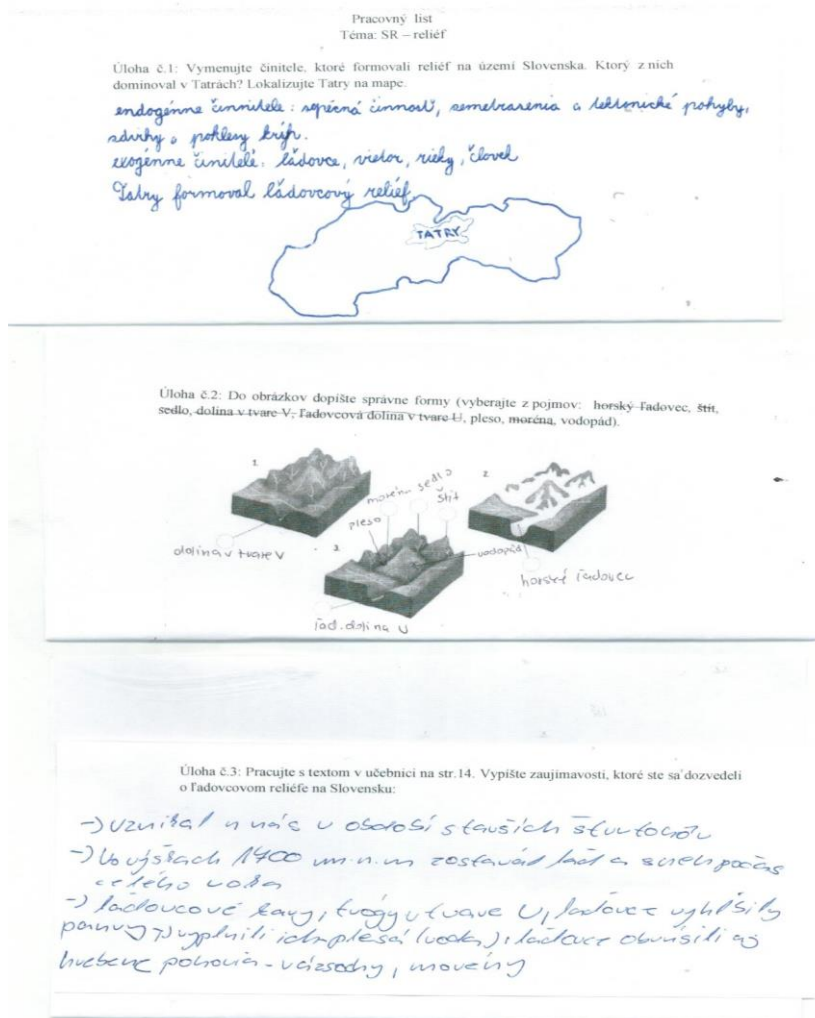 Pracovný list
Téma: SR – reliéf
Úloha č.1: Vymenujte činitele, ktoré formovali reliéf na území Slovenska. Ktorý z nich
dominoval v Tatrách? Lokalizujte Tatry na mape.
endogénne činnitele: sopečná činnosť, zemetrasenia a tektonické pohyby,
zdvihy, poklesy krýh.
exogénne činitelé: ľádovce, vietor, rieky, človek
Tatry formoval ľádovcový reliéf.
TATRY
Úloha č.2: Do obrázkov dopíšte správne formy (vyberajte z pojmov: horský ľadovec, štít,
sedlo, dolina v tvare V, ľadovcová dolina v tvare U, pleso, moréna, vodopád).
1.
2.
moréna
sedlo
štít
pleso
3.
vodopád
dolina v tvare V
horské ľadovec
ľad. dolina U
Úloha č.3: Pracujte s textom v učebnici na str.14. Vypíšte zaujímavosti, ktoré ste sa dozvedeli
o ľadovcovom reliéfe na Slovensku:
-) vznikal u nás v období starších štvrtohôr
-) Vo výškach 1400 m.n.m zostával ľad a sneh počas
celého roka
-) ľadovcové kary, trógy v tvare U, ľadovce vyhĺbily
panvy -) vyplnili ich plesá (voda), ľadovce obrúsili aj
hrebene pohoria - rázsochy, morény